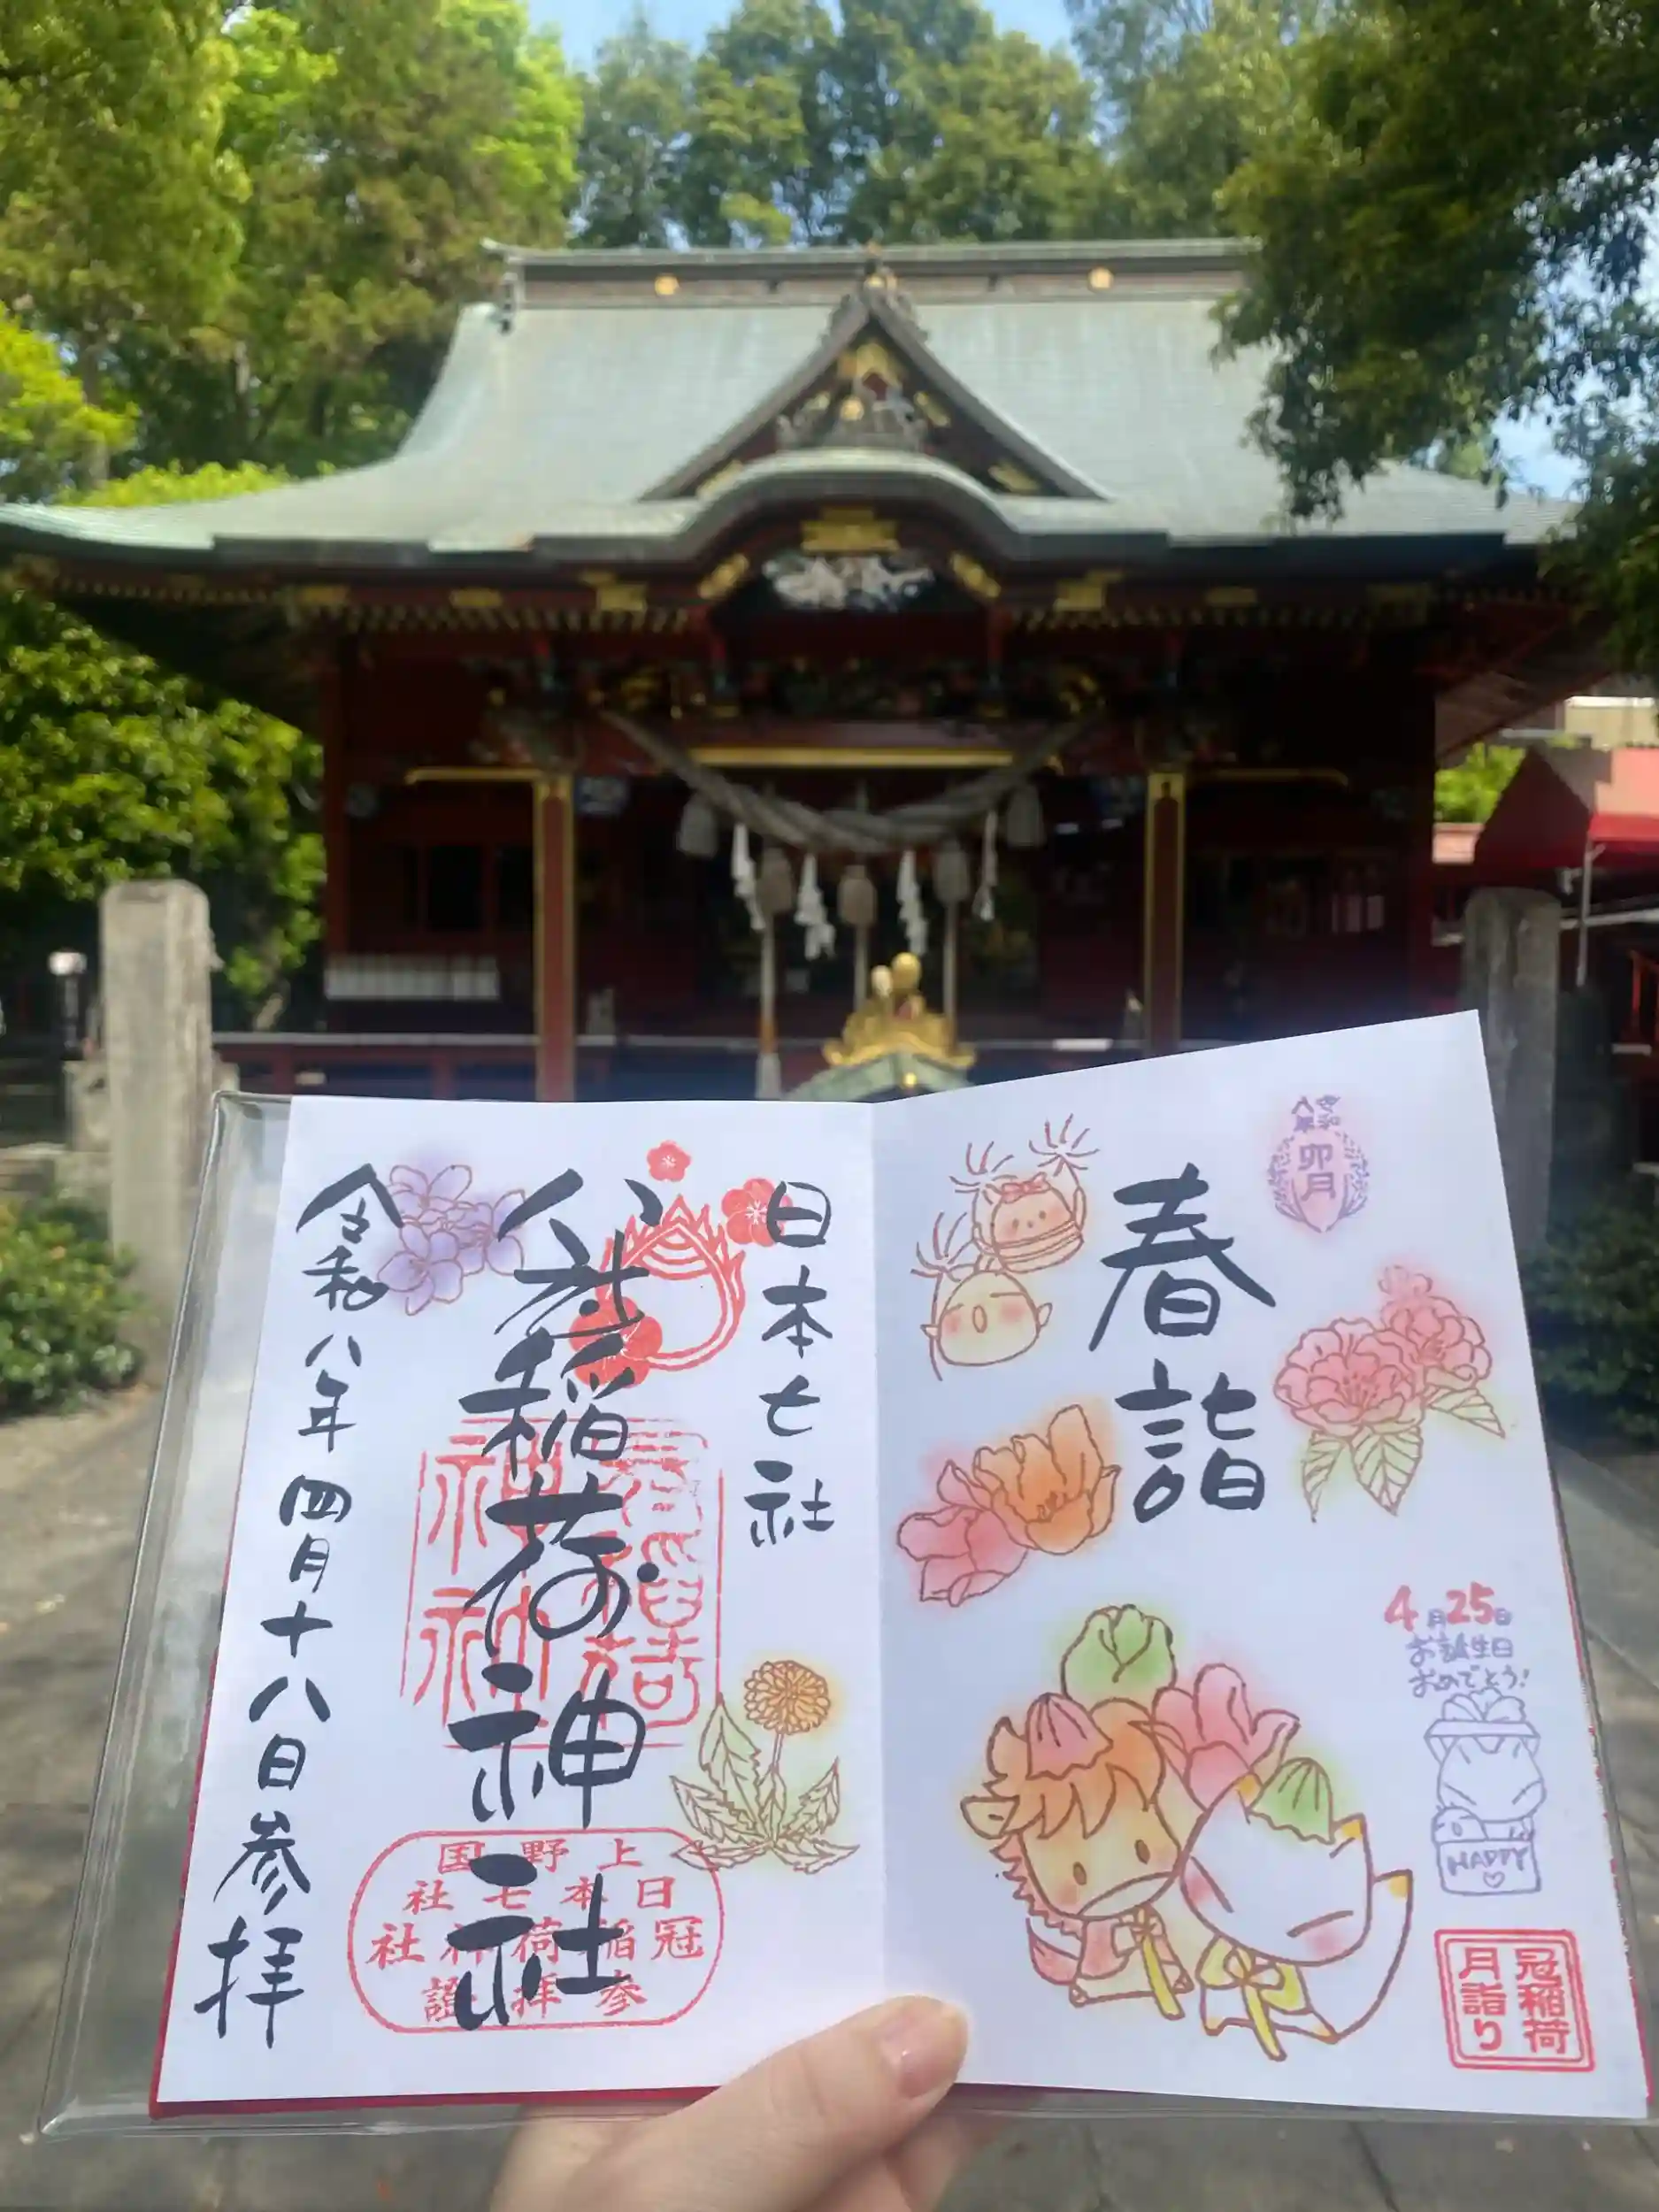 令和
八年
卯月
春詣
4月25日
お誕生日
おめでとう!
HAPPY
冠稲荷
月詣り
日本七社
冠稲荷神社
上野国
日本七社
冠稲荷神社
参拝
令和八年四月十八日参拝